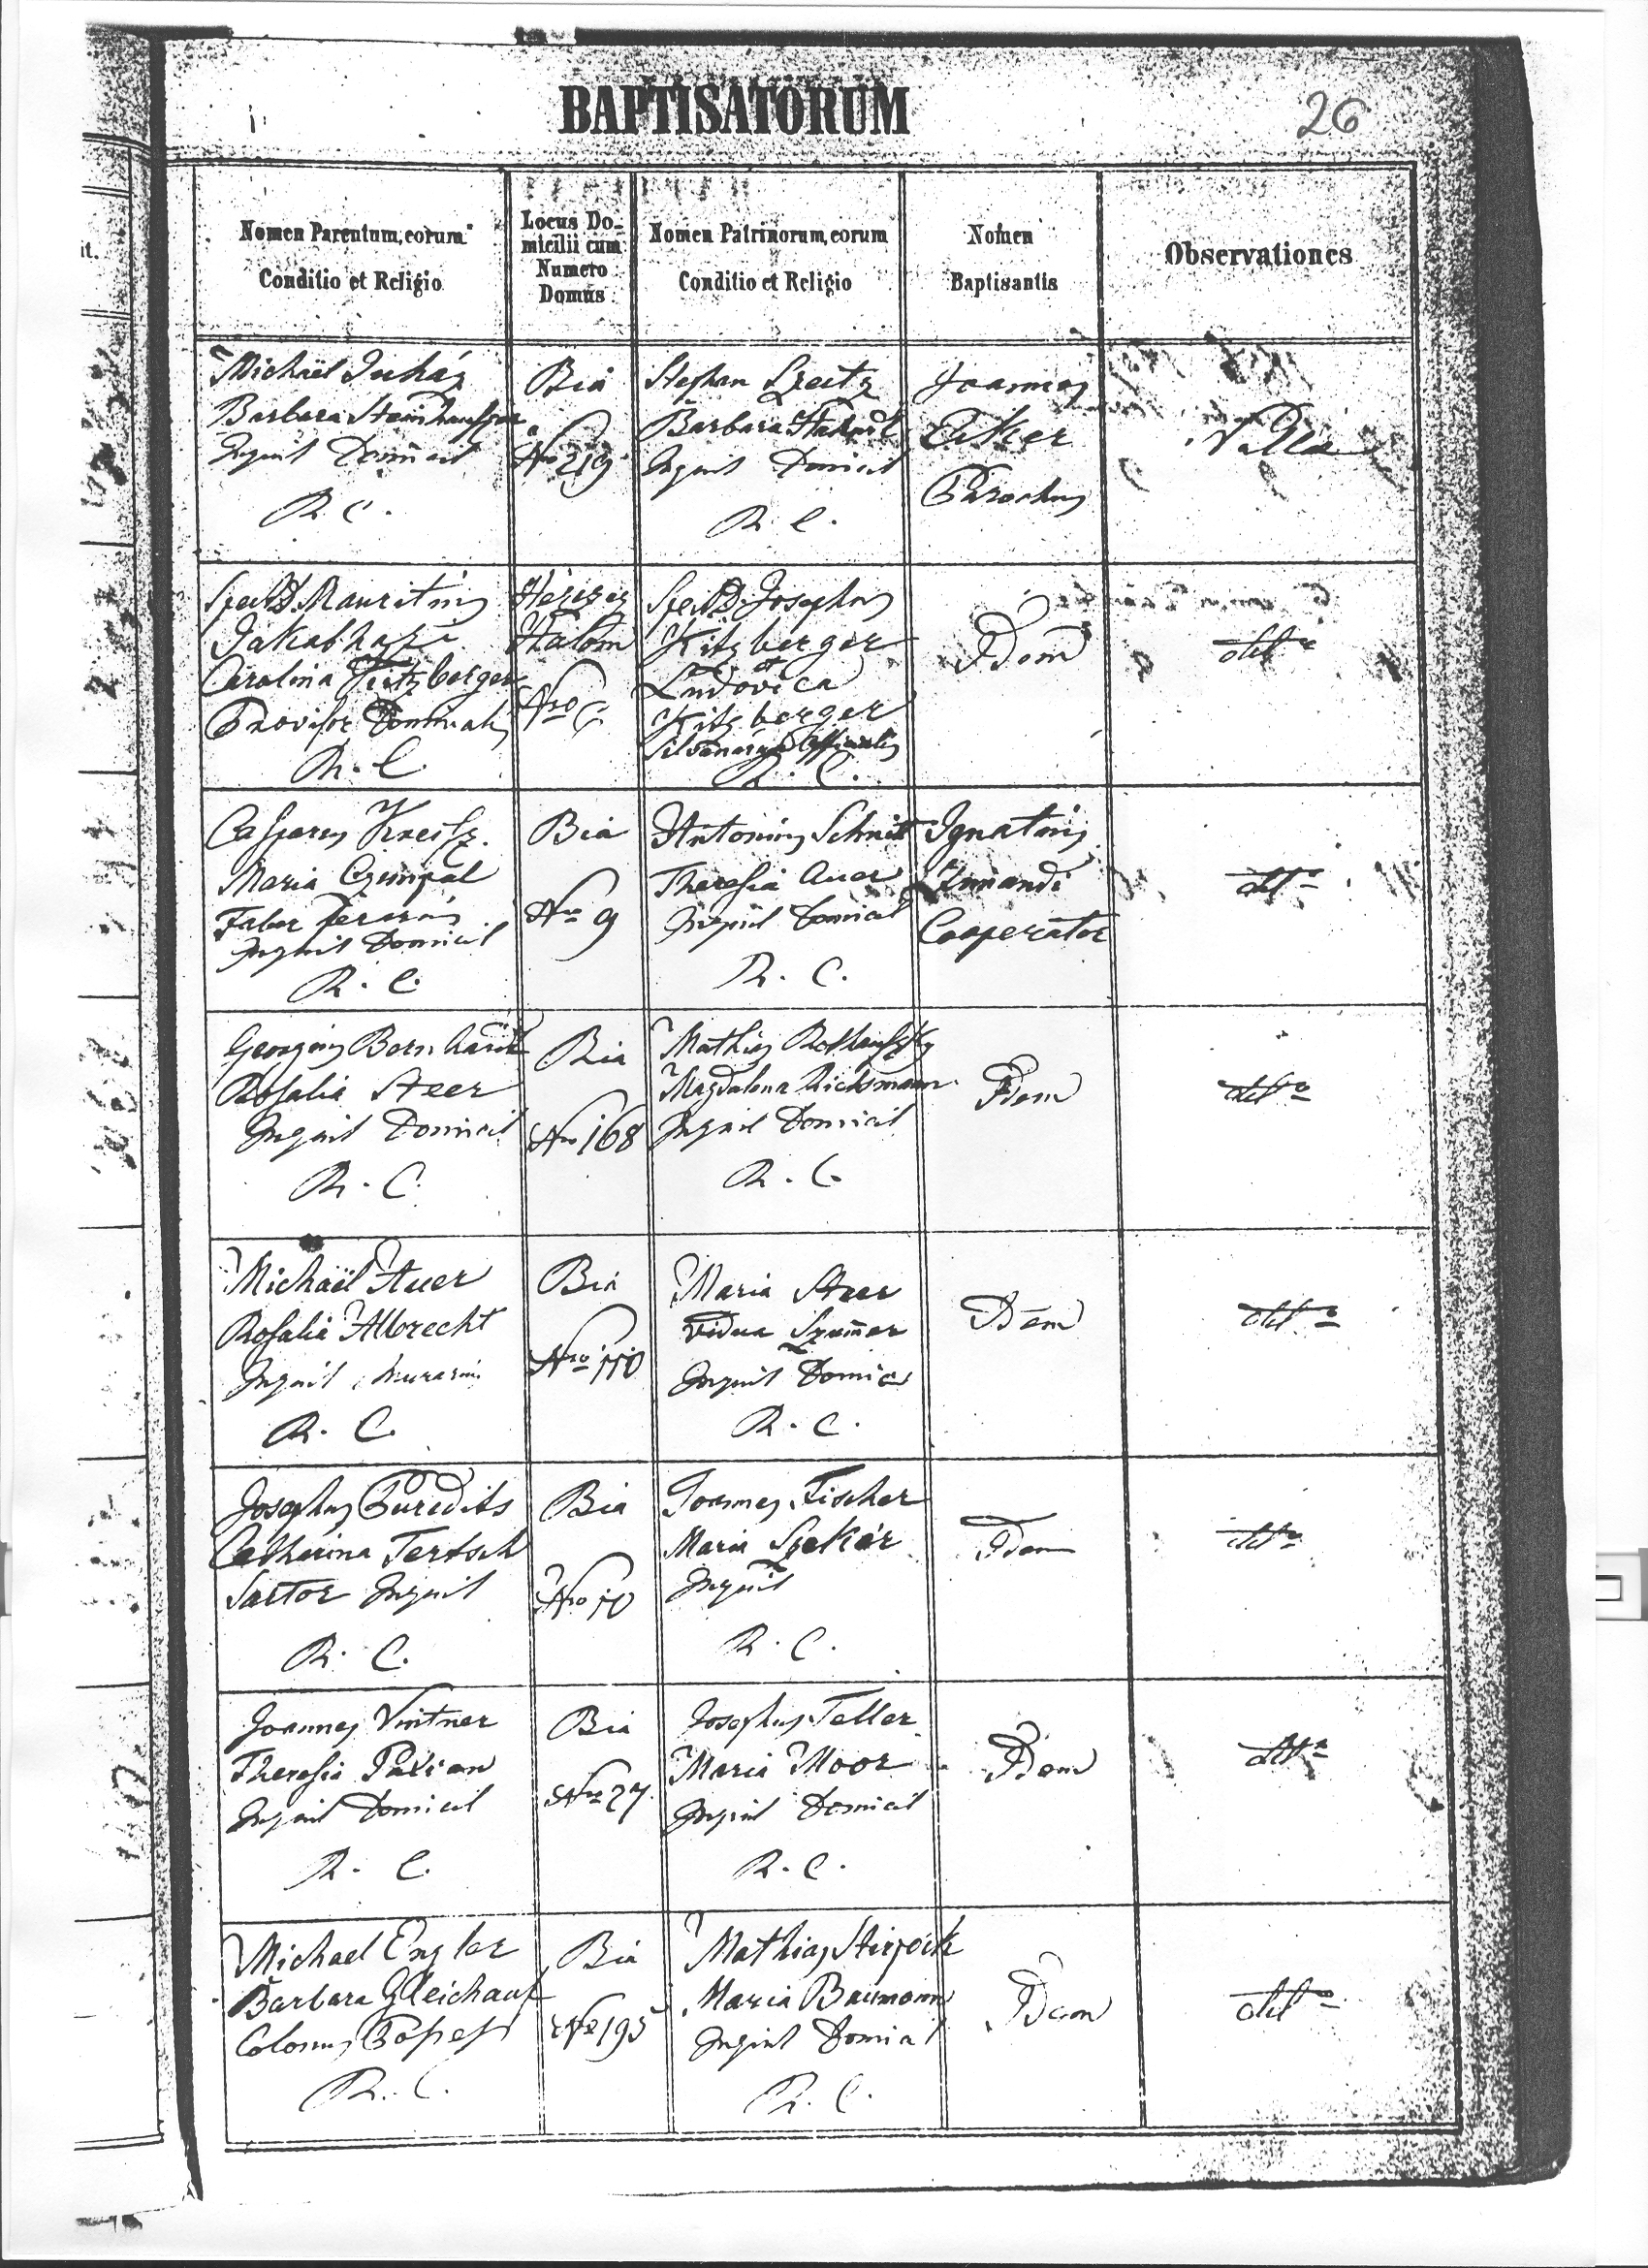 BAPTISATORUM
26
Nomen Parentum, eorum
Conditio et Religio
Locus Do-
micilii cum
Numero
Domus
Nomen Patrinorum, eorum
Conditio et Religio
Nomen
Baptisantis
Observationes
Michaël Juház
Barbara
Inquil Domicil
R. C.
Bia
Nro 219
Stephan Szeitz
Barbara
Inquil Domicil
R. C.
Joannes
Eiker
Parochus
Nulla
Mauritius
Jakabházi
Carolina Kitzberger
Provisor Dominalis
R. C.
Halom
Nro
Josephus
Kitzberger
et
Ludovica
Kitzberger
R. C.
Idem
detto
Casparus Kreisz
Maria
Faber
Inquil Domicil
R. C.
Bia
Nro 9
Antonius Schnitt
Theresia Auer
Inquil Domicil
R. C.
Ignatius
Cooperator
detto
Georgius Bernhardt
Rosalia Steer
Inquil Domicil
R. C.
Bia
Nro 168
Mathias
Magdalena Richsmann
Inquil Domicil
R. C.
Idem
detto
Michaël Auer
Rosalia Albrecht
Inquil murarius
R. C.
Bia
Nro 110
Maria Steer
Vidua Szummer
Inquil Domici
R. C.
Idem
detto
Josephus Puredits
Catharina Tertsch
Sartor Inquil
R. C.
Bia
Nro 10
Joannes Fischer
Maria Szekér
Inquil
R. C.
Idem
detto
Joannes Vintner
Theresia Paxian
Inquil Domicil
R. C.
Bia
Nro 27
Josephus Teller
Maria Moor
Inquil Domicil
R. C.
Idem
detto
Michael Engler
Barbara Gleichauf
Colonus
R. C.
Bia
Nro 195
Mathias
Maria Baumann
Inquil Domicil
R. C.
Idem
detto